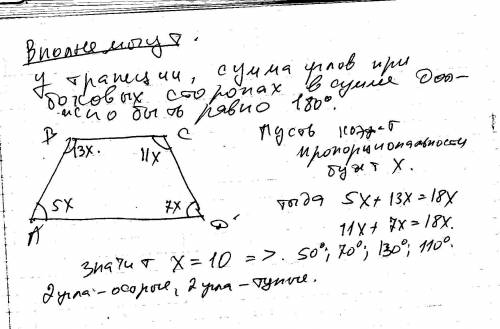 Вполне могут.
У трапеции, сумма углов при
боковых сторонах в сумме дол-
жно быть равно 180°.
Пусть коэф-т
пропорциональности
будет X.
B C
13x 11x
5x 7x
A D
тогда 5x + 13x = 18x
11x + 7x = 18x.
значит x = 10 => 50°; 70°; 130°; 110°.
2 угла - острые, 2 угла - тупые.